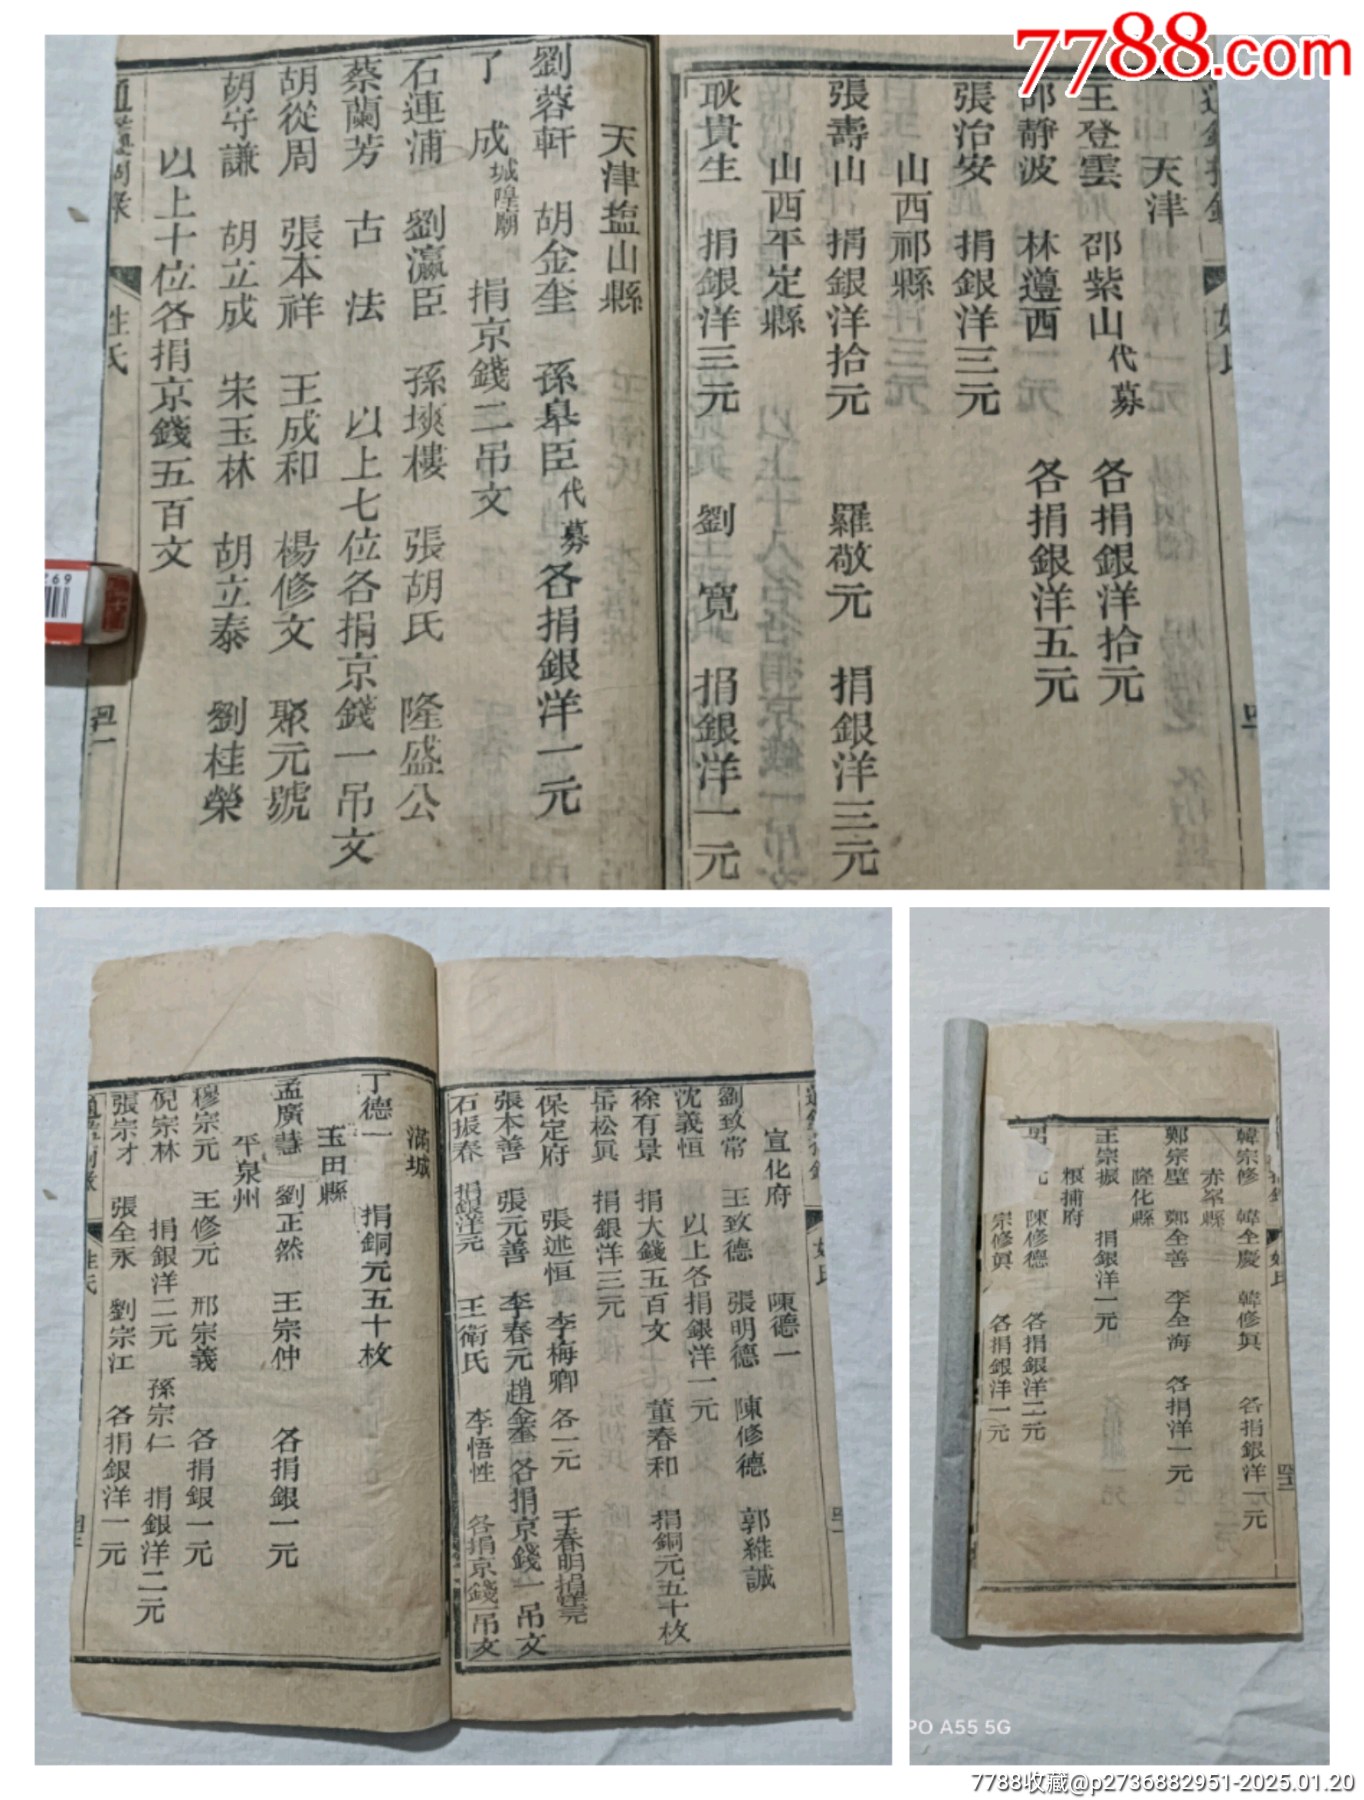 7788.com
天津
王登雲 邵紫山代募 各捐銀洋拾元
邵靜波 林遵西 各捐銀洋五元
張治安 捐銀洋三元
山西祁縣
張壽山 捐銀洋拾元 羅敬元 捐銀洋三元
山西平定縣
耿貴生 捐銀洋三元 劉寬 捐銀洋一元
天津塩山縣
劉蓉軒 胡金奎 孫皋臣代募 各捐銀洋一元
了成城隍廟 捐京錢二吊文
石連浦 劉瀛臣 孫埮樓 張胡氏 隆盛公
蔡蘭芳 古法 以上七位各捐京錢一吊文
胡從周 張本祥 王成和 楊修文 聚元號
胡守謙 胡立成 宋玉林 胡立泰 劉桂榮
以上十位各捐京錢五百文
姓氏
宣化府 陳德一
劉致常 王致德 張明德 陳修德 郭維誠
沈義恒 以上各捐銀洋一元
徐有景 捐大錢五百文 董春和 捐銅元五十枚
岳松眞 捐銀洋三元
保定府 張述恒 李梅卿 各一元 于春明
張本善 張元善 李春元 趙金奎 各捐京錢一吊文
石振春 捐銀洋元 王衛氏 李悟性 各捐京錢一吊文
滿城
丁德一 捐銅元五十枚
玉田縣
孟廣慧 劉正然 王宗仲 各捐銀一元
平泉州
穆宗元 王修元 邢宗義 各捐銀一元
倪宗林 捐銀洋二元 孫宗仁 捐銀洋二元
張宗才 張全永 劉宗江 各捐銀洋一元
姓氏
韓宗修 韓全慶 韓修眞 各捐銀洋一元
赤峯縣
鄭宗壁 鄭全善 李全海 各捐洋一元
隆化縣
王宗振 捐銀洋一元
粮捕府
陳修德 各捐銀洋二元
宗修眞 各捐銀洋一元
PO A55 5G
7788收藏@p2736882951-2025.01.20